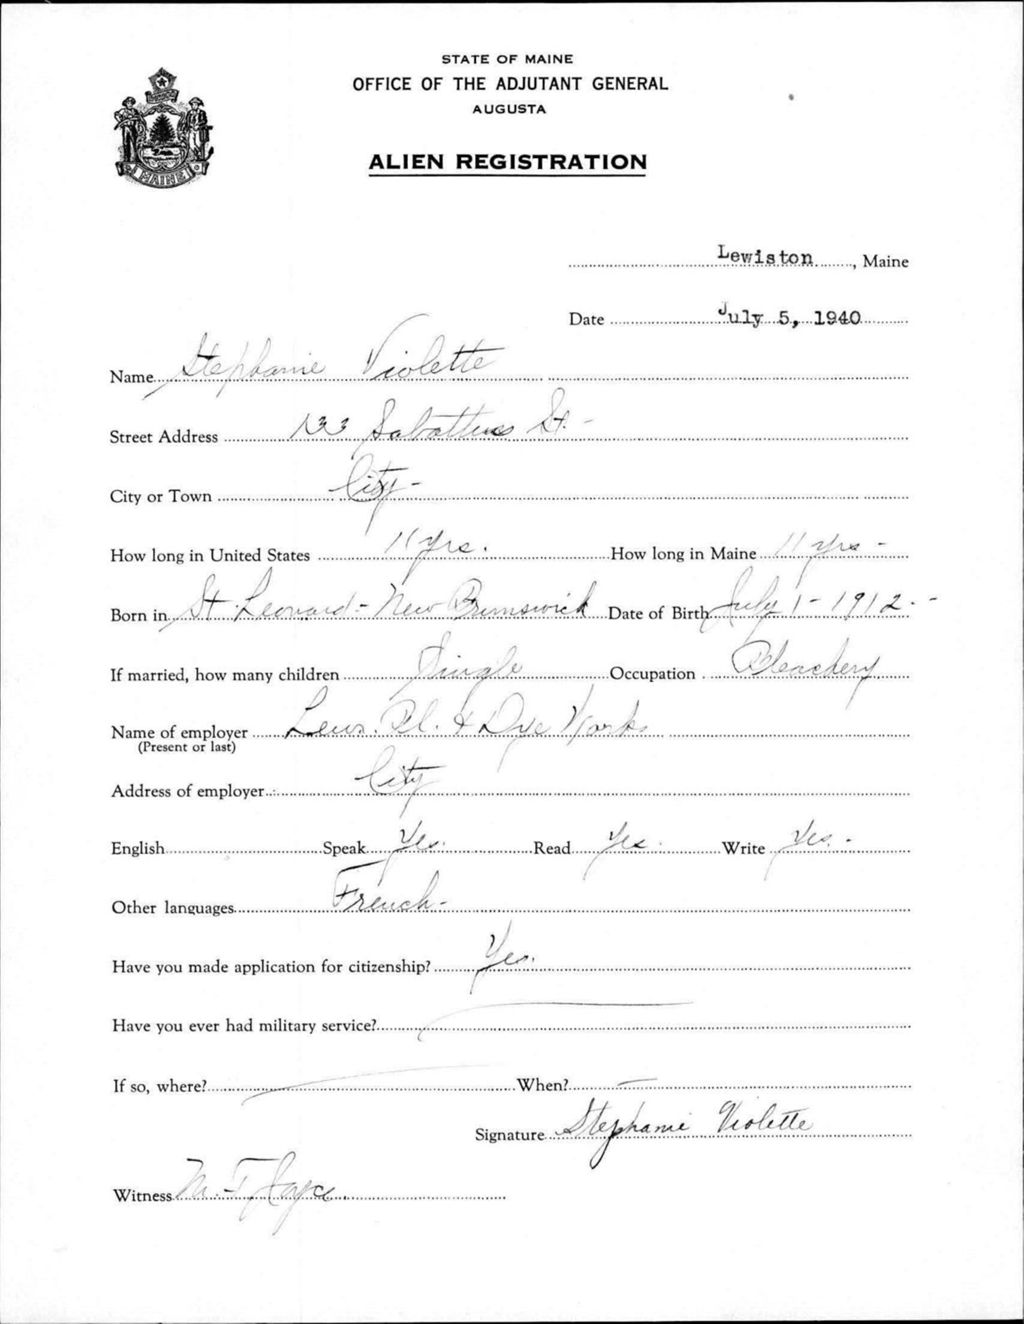 STATE OF MAINE
OFFICE OF THE ADJUTANT GENERAL
AUGUSTA
ALIEN REGISTRATION
MAINE
Lewiston, Maine
Date July 5, 1940
Name Stephanie Violette
Street Address 133 Sabattus St. -
City or Town City -
How long in United States 11 yrs. How long in Maine 11 yrs -
Born in St. Leonard - New Brunswick Date of Birth July 1 - 1912. -
If married, how many children Single Occupation Bleachery
Name of employer Lew. Bl. & Dye Works
(Present or last)
Address of employer City
English Speak Yes. Read Yes. Write Yes. -
Other languages French -
Have you made application for citizenship? Yes.
Have you ever had military service? —
If so, where? — When? —
Signature Stephanie Violette
Witness M. F. Joyce.